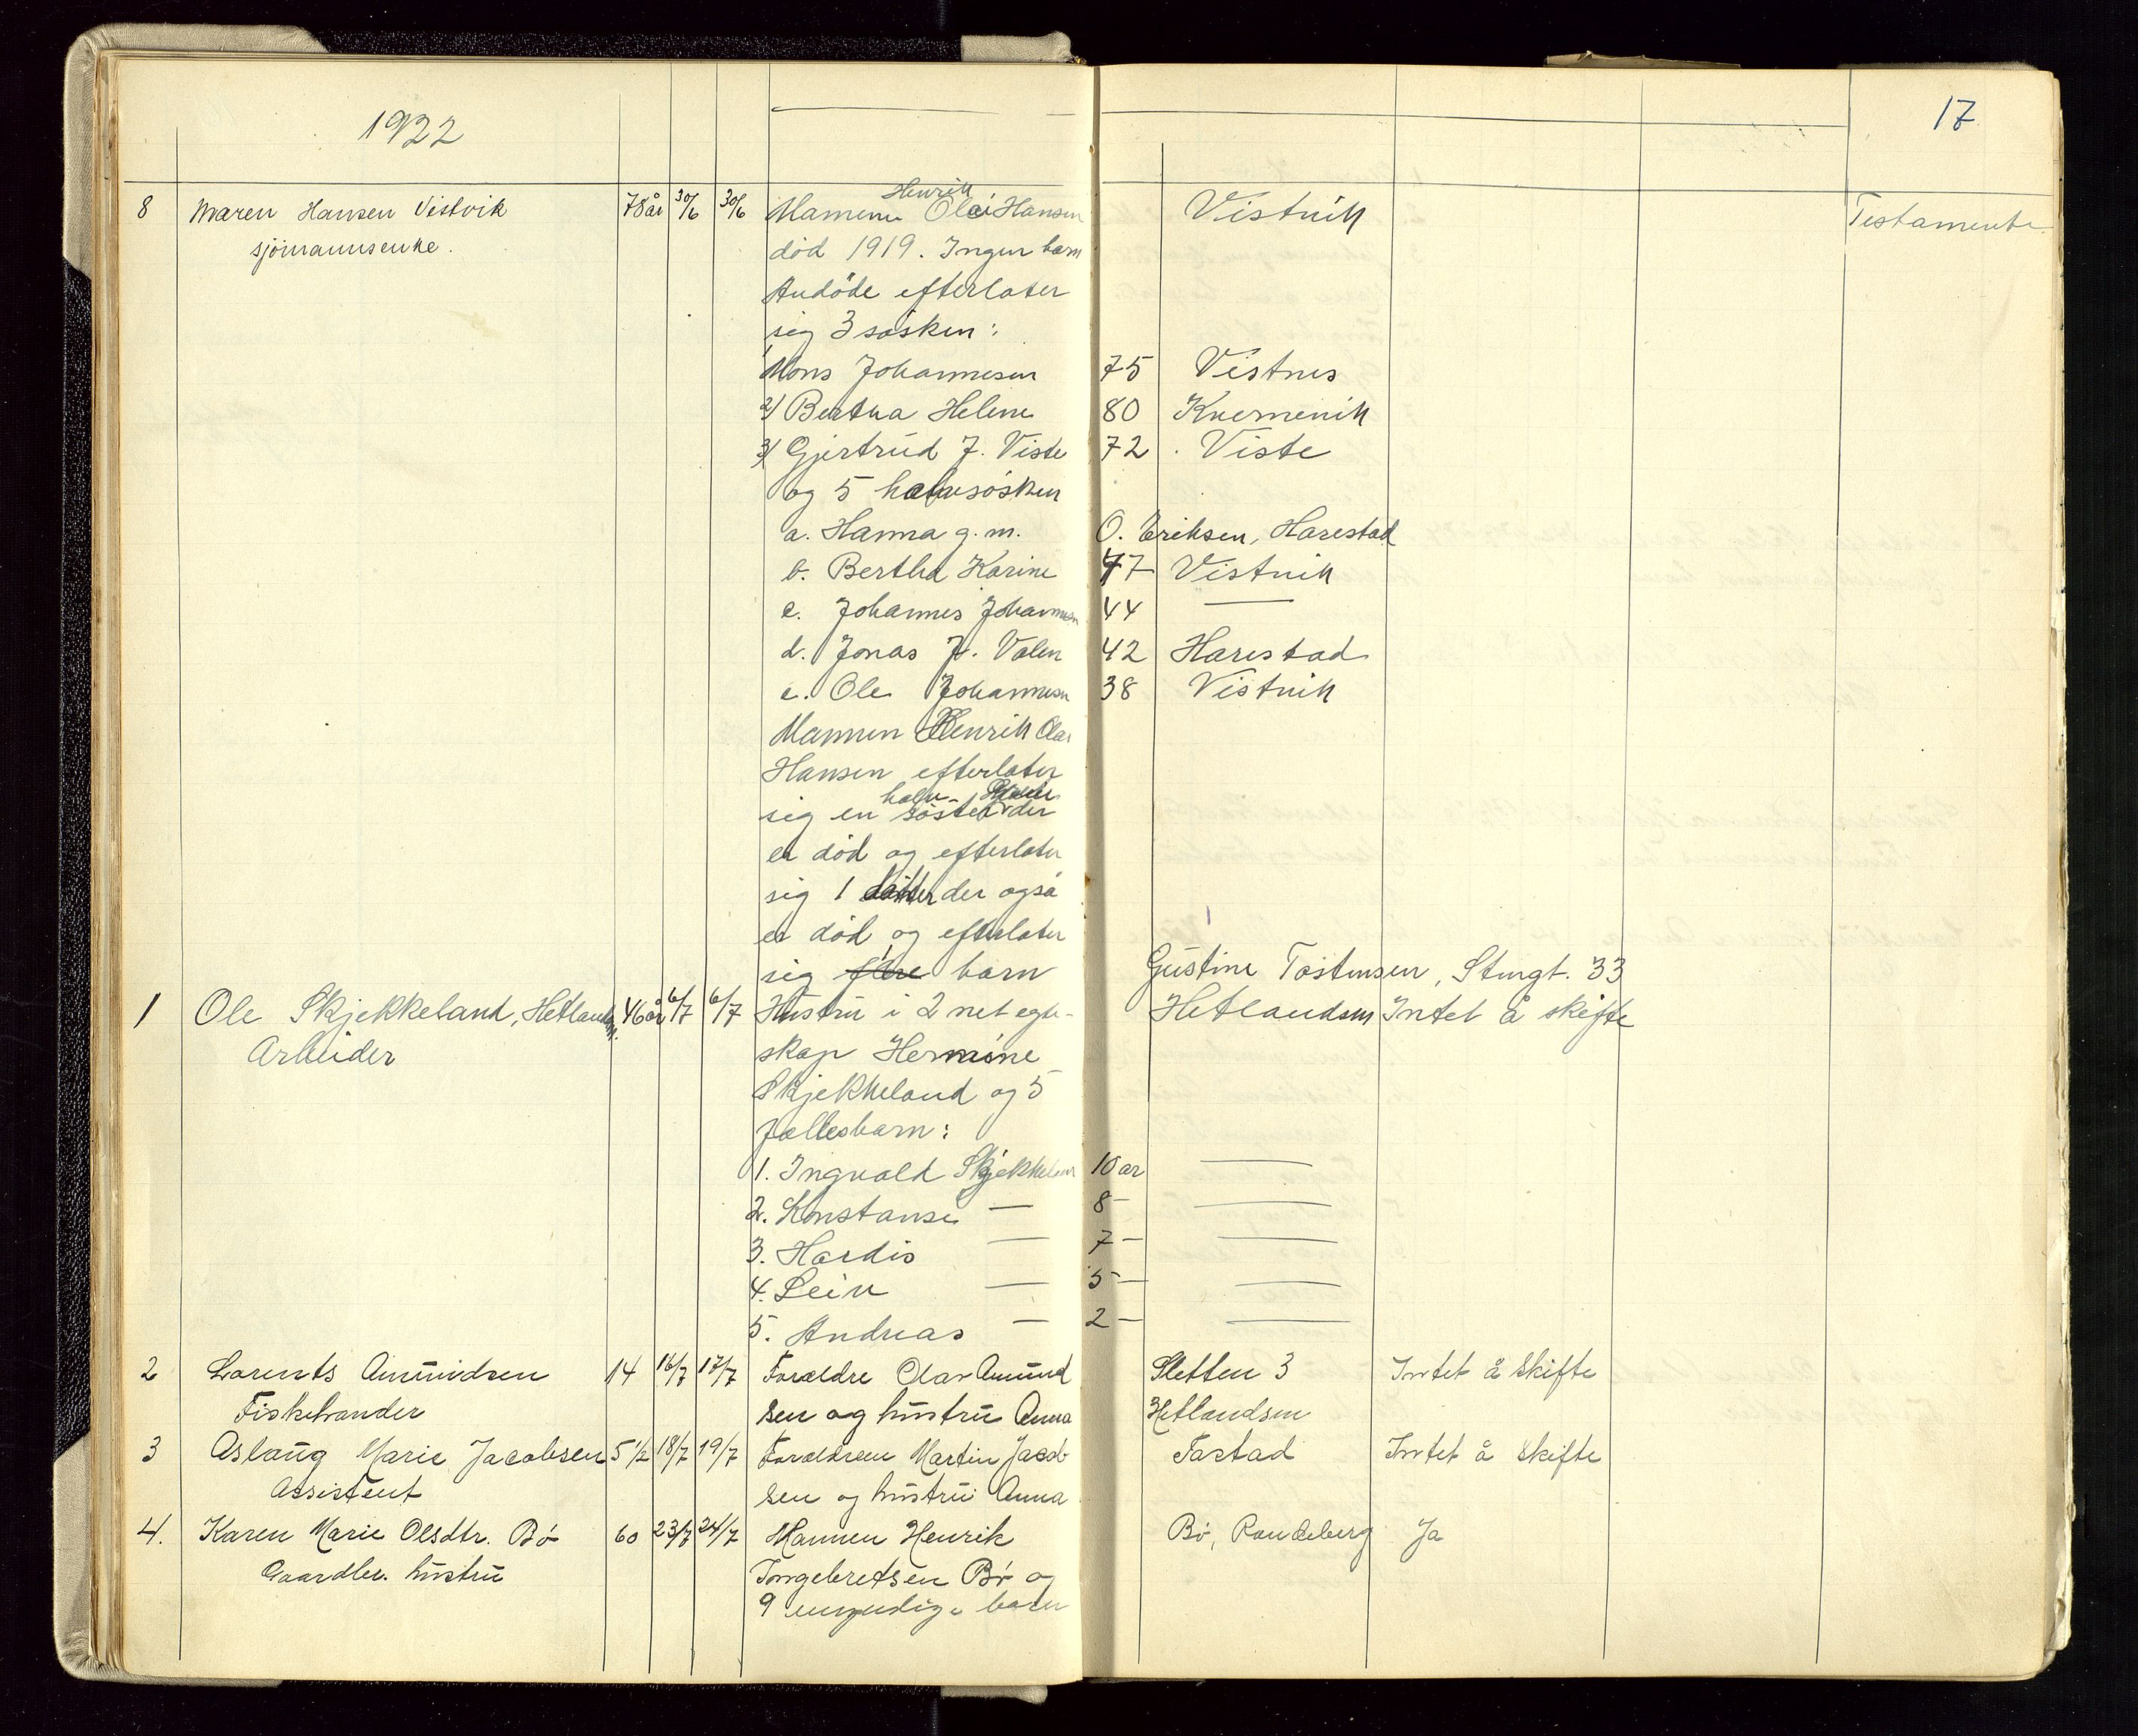 1922
17
8 Maren Hansen Vistvik 78 år 30/6 30/6 Mannen Henrik Olai Hansen Vistvik Testamente
sjömannsenke. død 1919. Ingen barn
Avdöde efterlater
sig 3 søsken:
Mons Johannesen 75 Vistnes
2) Bertha Helene 80 Kvernevik
3) Gjertrud J. Viste 72 Viste
og 5 halvsøsken
a. Hanna g.m. O. Eriksen, Harestad
b. Bertha Karine 47 Vistvik
c. Johannes Johannesen 44 —
d. Jonas J. Valen 42 Harestad
e. Ole Johannesen 38 Vistvik
Mannen Henrik Olai
Hansen efterlater
sig en halv- søster der
er død og efterlater
sig 1 datter der også
er død og efterlater
sig barn Gustine Tostensen, Stingt. 33
1 Ole Skjekkeland, Hetlandsm. 46 år 6/7 6/7 Hustru i 2net egte- Hetlandsm Intet å skifte
Arbeider skap Hermine
Skjekkeland og 5
fællesbarn:
1. Ingvald Skjekkeland 10 år —
2. Konstanse — 8 — —
3. Hardis — 7 — —
4. Leiv — 5 — —
5. Andreas — 2 — —
2 Lorents Amundsen 14 16/7 17/7 Forældre Olav Amund Sletten 3 Intet å skifte
Fiskehandler sen og hustru Anna Hetlandsm
3 Aslaug Marie Jacobsen 5 1/2 18/7 19/7 Forældreen Martin Jacob Tastad Intet å skifte
Assistent sen og hustru Anna
4. Karen Marie Olsdtr. Bø 60 23/7 24/7 Mannen Henrik Bø, Randeberg Ja
Gaardbr. hustru Ingebretsen Bø og
9 umyndige barn